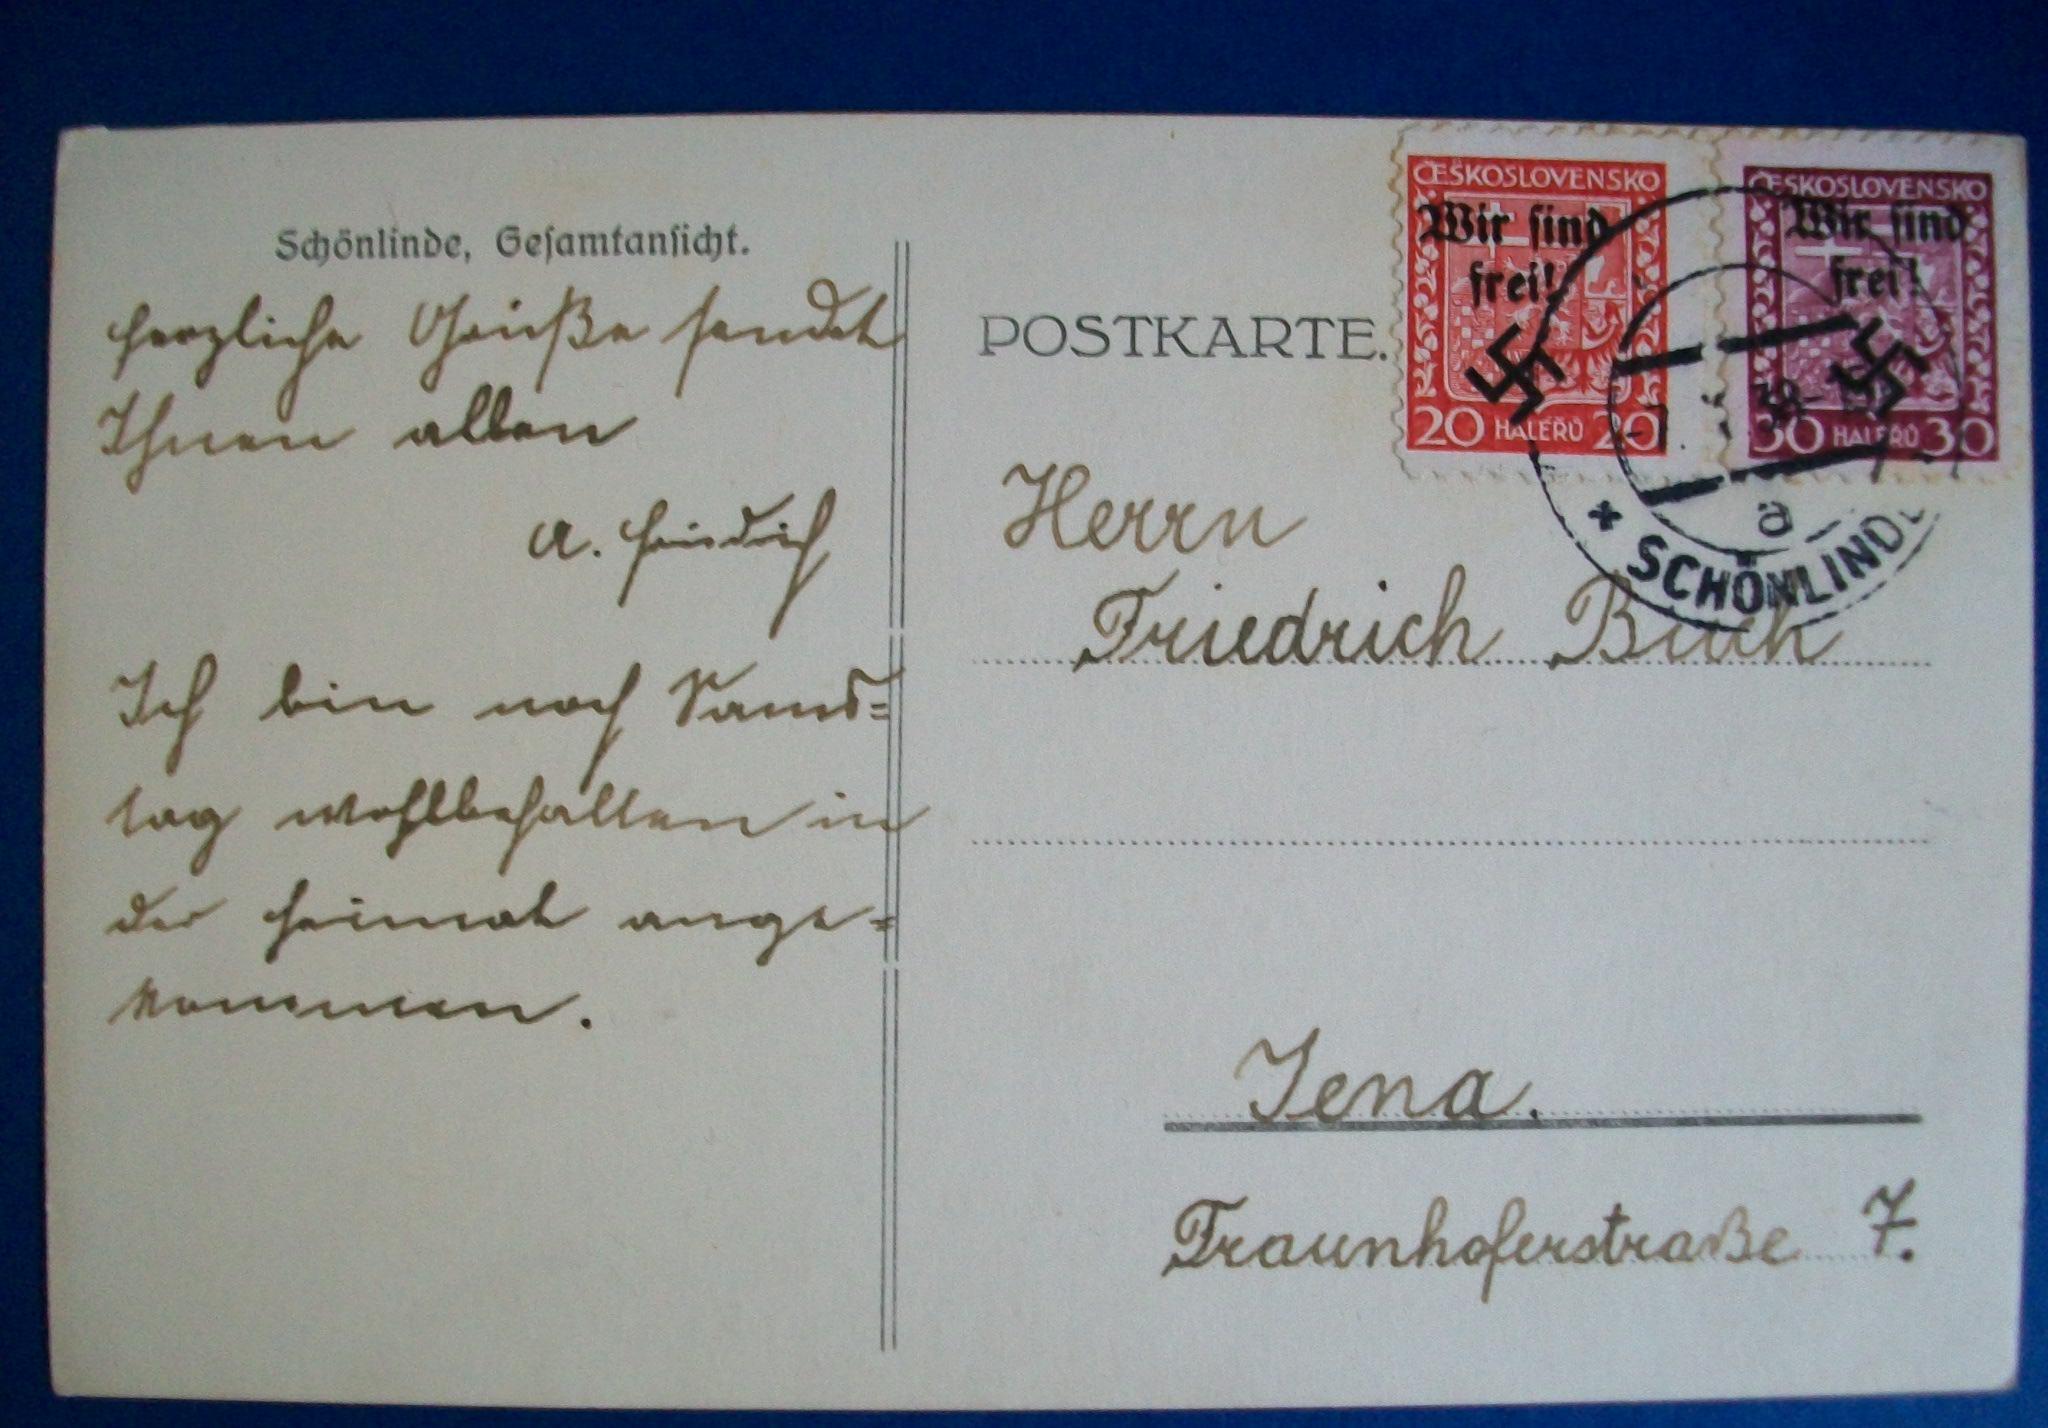 Schönlinde, Gesamtansicht.
herzliche Grüße sendet
Ihnen allen
A.
Ich bin noch Sams=
tag wohlbehalten in
der Heimat ange=
kommen.
POSTKARTE.
ČESKOSLOVENSKO
Wir sind
frei!
20 HALÉŘŮ 20
ČESKOSLOVENSKO
Wir sind
frei!
30 HALÉŘŮ 30
a
* SCHÖNLINDE
Herrn
Friedrich
Jena.
Fraunhoferstraße 7.